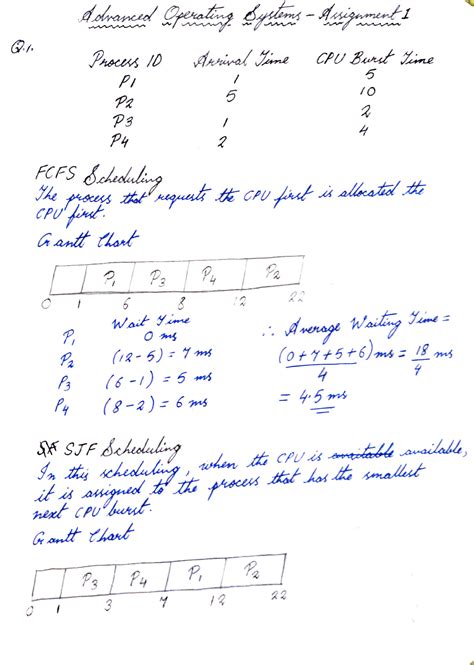 Advanced Operating Systems - Assignment 1
Q.1. Process ID Arrival Time CPU Burst Time
P1 1 5
P2 5 10
P3 1 2
P4 2 4
FCFS Scheduling
The process that requests the CPU first is allocated the
CPU first.
Gantt Chart
P1 P3 P4 P2
0 1 6 8 12 22
Wait Time
P1 0 ms
P2 (12-5) = 7 ms
P3 (6-1) = 5 ms
P4 (8-2) = 6 ms
∴ Average Waiting Time =
(0+7+5+6)ms = 18 ms
4 4
= 4.5 ms
SJF Scheduling
In this scheduling, when the CPU is available available,
it is assigned to the process that has the smallest
next CPU burst.
Gantt Chart
P3 P4 P1 P2
0 1 3 7 12 22